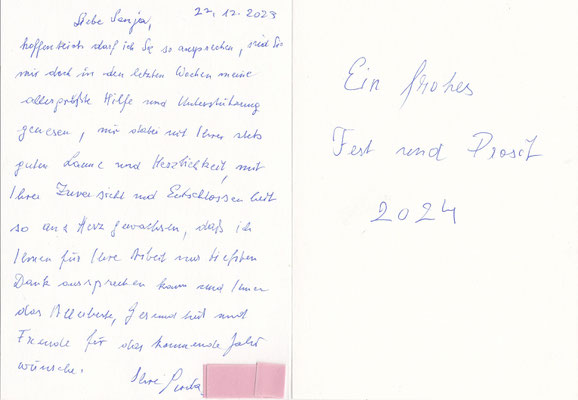 22.12.2023
Liebe Sanja,
hoffentlich darf ich Sie so ansprechen, sind Sie
mir doch in den letzten Wochen meine
allergrößte Hilfe und Unterstützung
gewesen, mir dabei mit Ihrer stets
guten Laune und Herzlichkeit, mit
Ihrer Zuversicht und Entschlossenheit
so ans Herz gewachsen, daß ich
Ihnen für Ihre Arbeit nur tiefsten
Dank aussprechen kann und Ihnen
das Allerbeste, Gesundheit und
Freude für das kommende Jahr
wünsche.
Ihre
Ein frohes
Fest und Prosit
2024